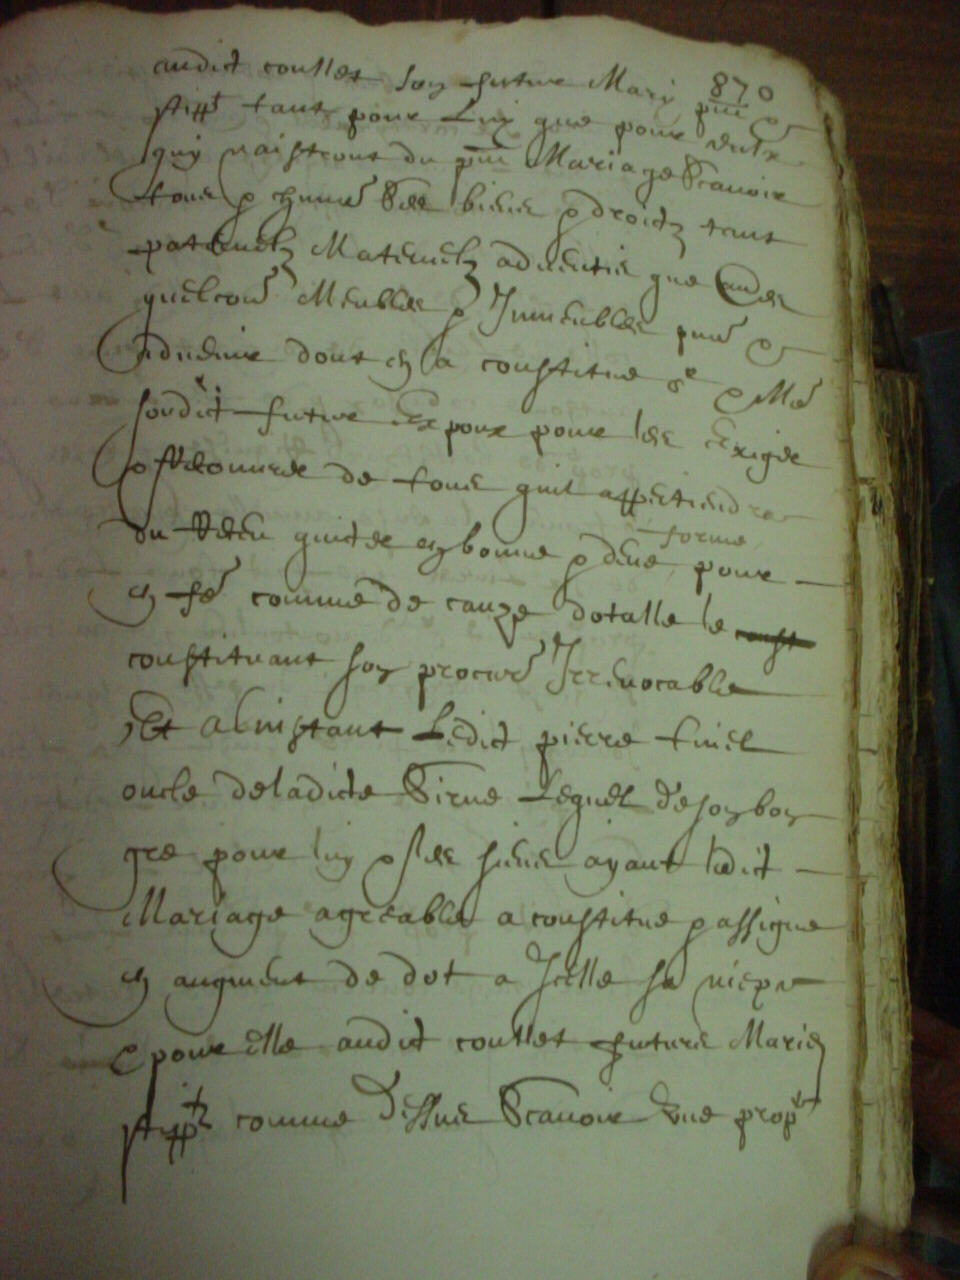 870
audict coullet son futur Mary pnt &
stippt tant pour Luy que pour ceulx
quy naistront du pnt Mariage Scavoir
tous & chuns Ses biens & droictz tant
paternelz Maternelz adventis que aues
quelcons Meubles & Immeubles pns &
advenir dont en a constitue & Me
sondict futur Expoux pour les Exiger
& Recouvrer de tous quil appertiendra
forme
du Receu quicter en bonne & deue pour
en fe comme de cauze dotalle le const
constituant son procur Irrevocable
Et a linstant Ledict pierre
oncle de ladicte Lequel de son bon
gre pour luy & les siens ayant ledict
Mariage agreable a constitue & assigne
en augment de dot a Icelle sa niepce
& pour elle audict coullet futur Marie
stippt comme dessus Scavoir Une propt